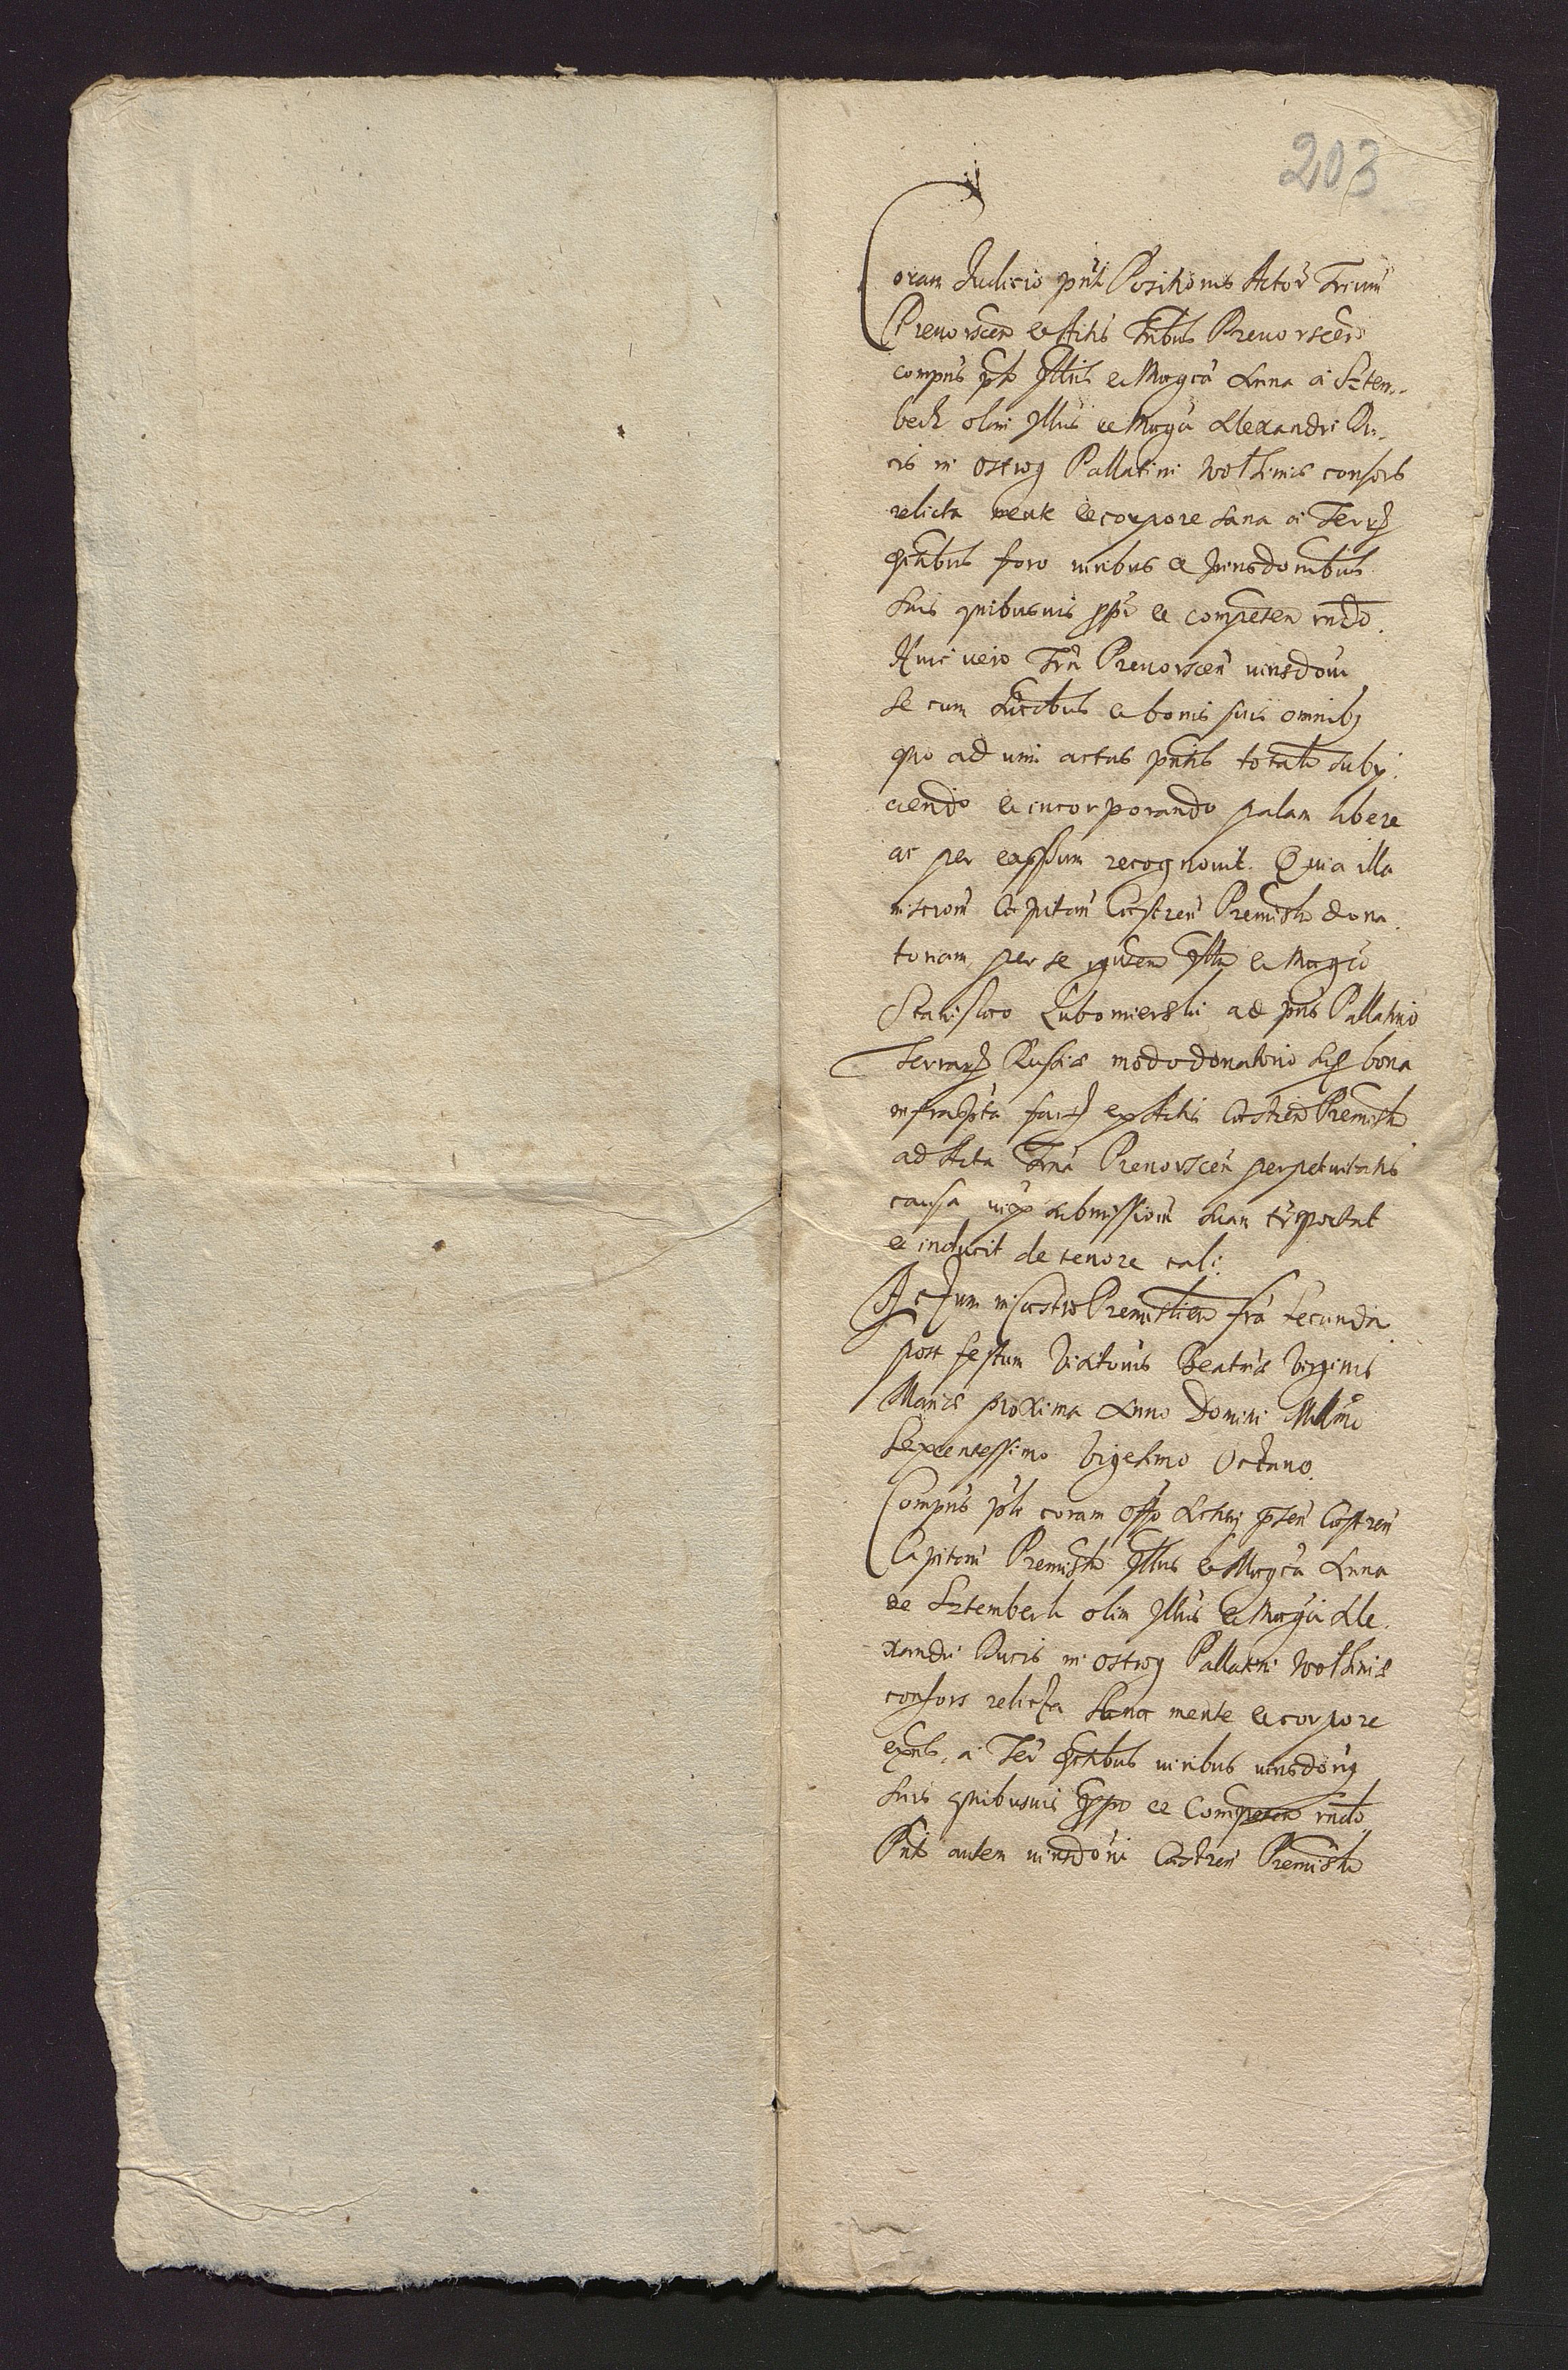 203
Coram Judicio pnti Positionis Actor Trium
Prevorscen et Actis Tribus Prevorscen
compns psr Illris et Magca Anna a Sztem-
berk olim Illris et Magci Alexandri Du-
cis in Ostrog Pallatini Wolhiniæ consors
relicta mente et corpore sana a Terrz
Distctibus foro iuribus et Jurisdonibus
suis quibusuis ppr et competen rndo.
Huic vero Tria Prevorscen iurisdoni
se cum succribus et bonis suis omnibz
quo ad vim actus pntis totalr subij-
ciendo et incorporando palam libere
ac per expssum recognovit. Quia illa
inscrom Capitan Castren Premislien dona-
toriam per se Illri et Magco
Stanislao Lubomierski ad pns Pallatino
Terrarz Russiæ modo donatorio bona
infrascpta factz ex Actis Castren Premislien
ad Acta Trna Prevorscen perpetuitatis
causa submissionis suæ trsportat
et inducit de tenore tali:
Actum in Castro Premislien fria secunda
post festum Visitonis Beatæ Virginis
Mariæ proxima Anno Domini Millmo
Sexcentessimo Vigesimo Octavo.
Compns psr coram Offo Actisq psen Castren
Capitan Premislien Illris et Magca Anna
de Sztemberk olim Illris et Magci Ale-
xandri Ducis in Ostrog Pallatini Wolhiniæ
consors relicta sana mente et corpore
exns, a Ter Disctibus iuribus iurisdonq
suis quibusuis ppr et Competen rndo.
Pnti autem iurisdoni Castren Premislien